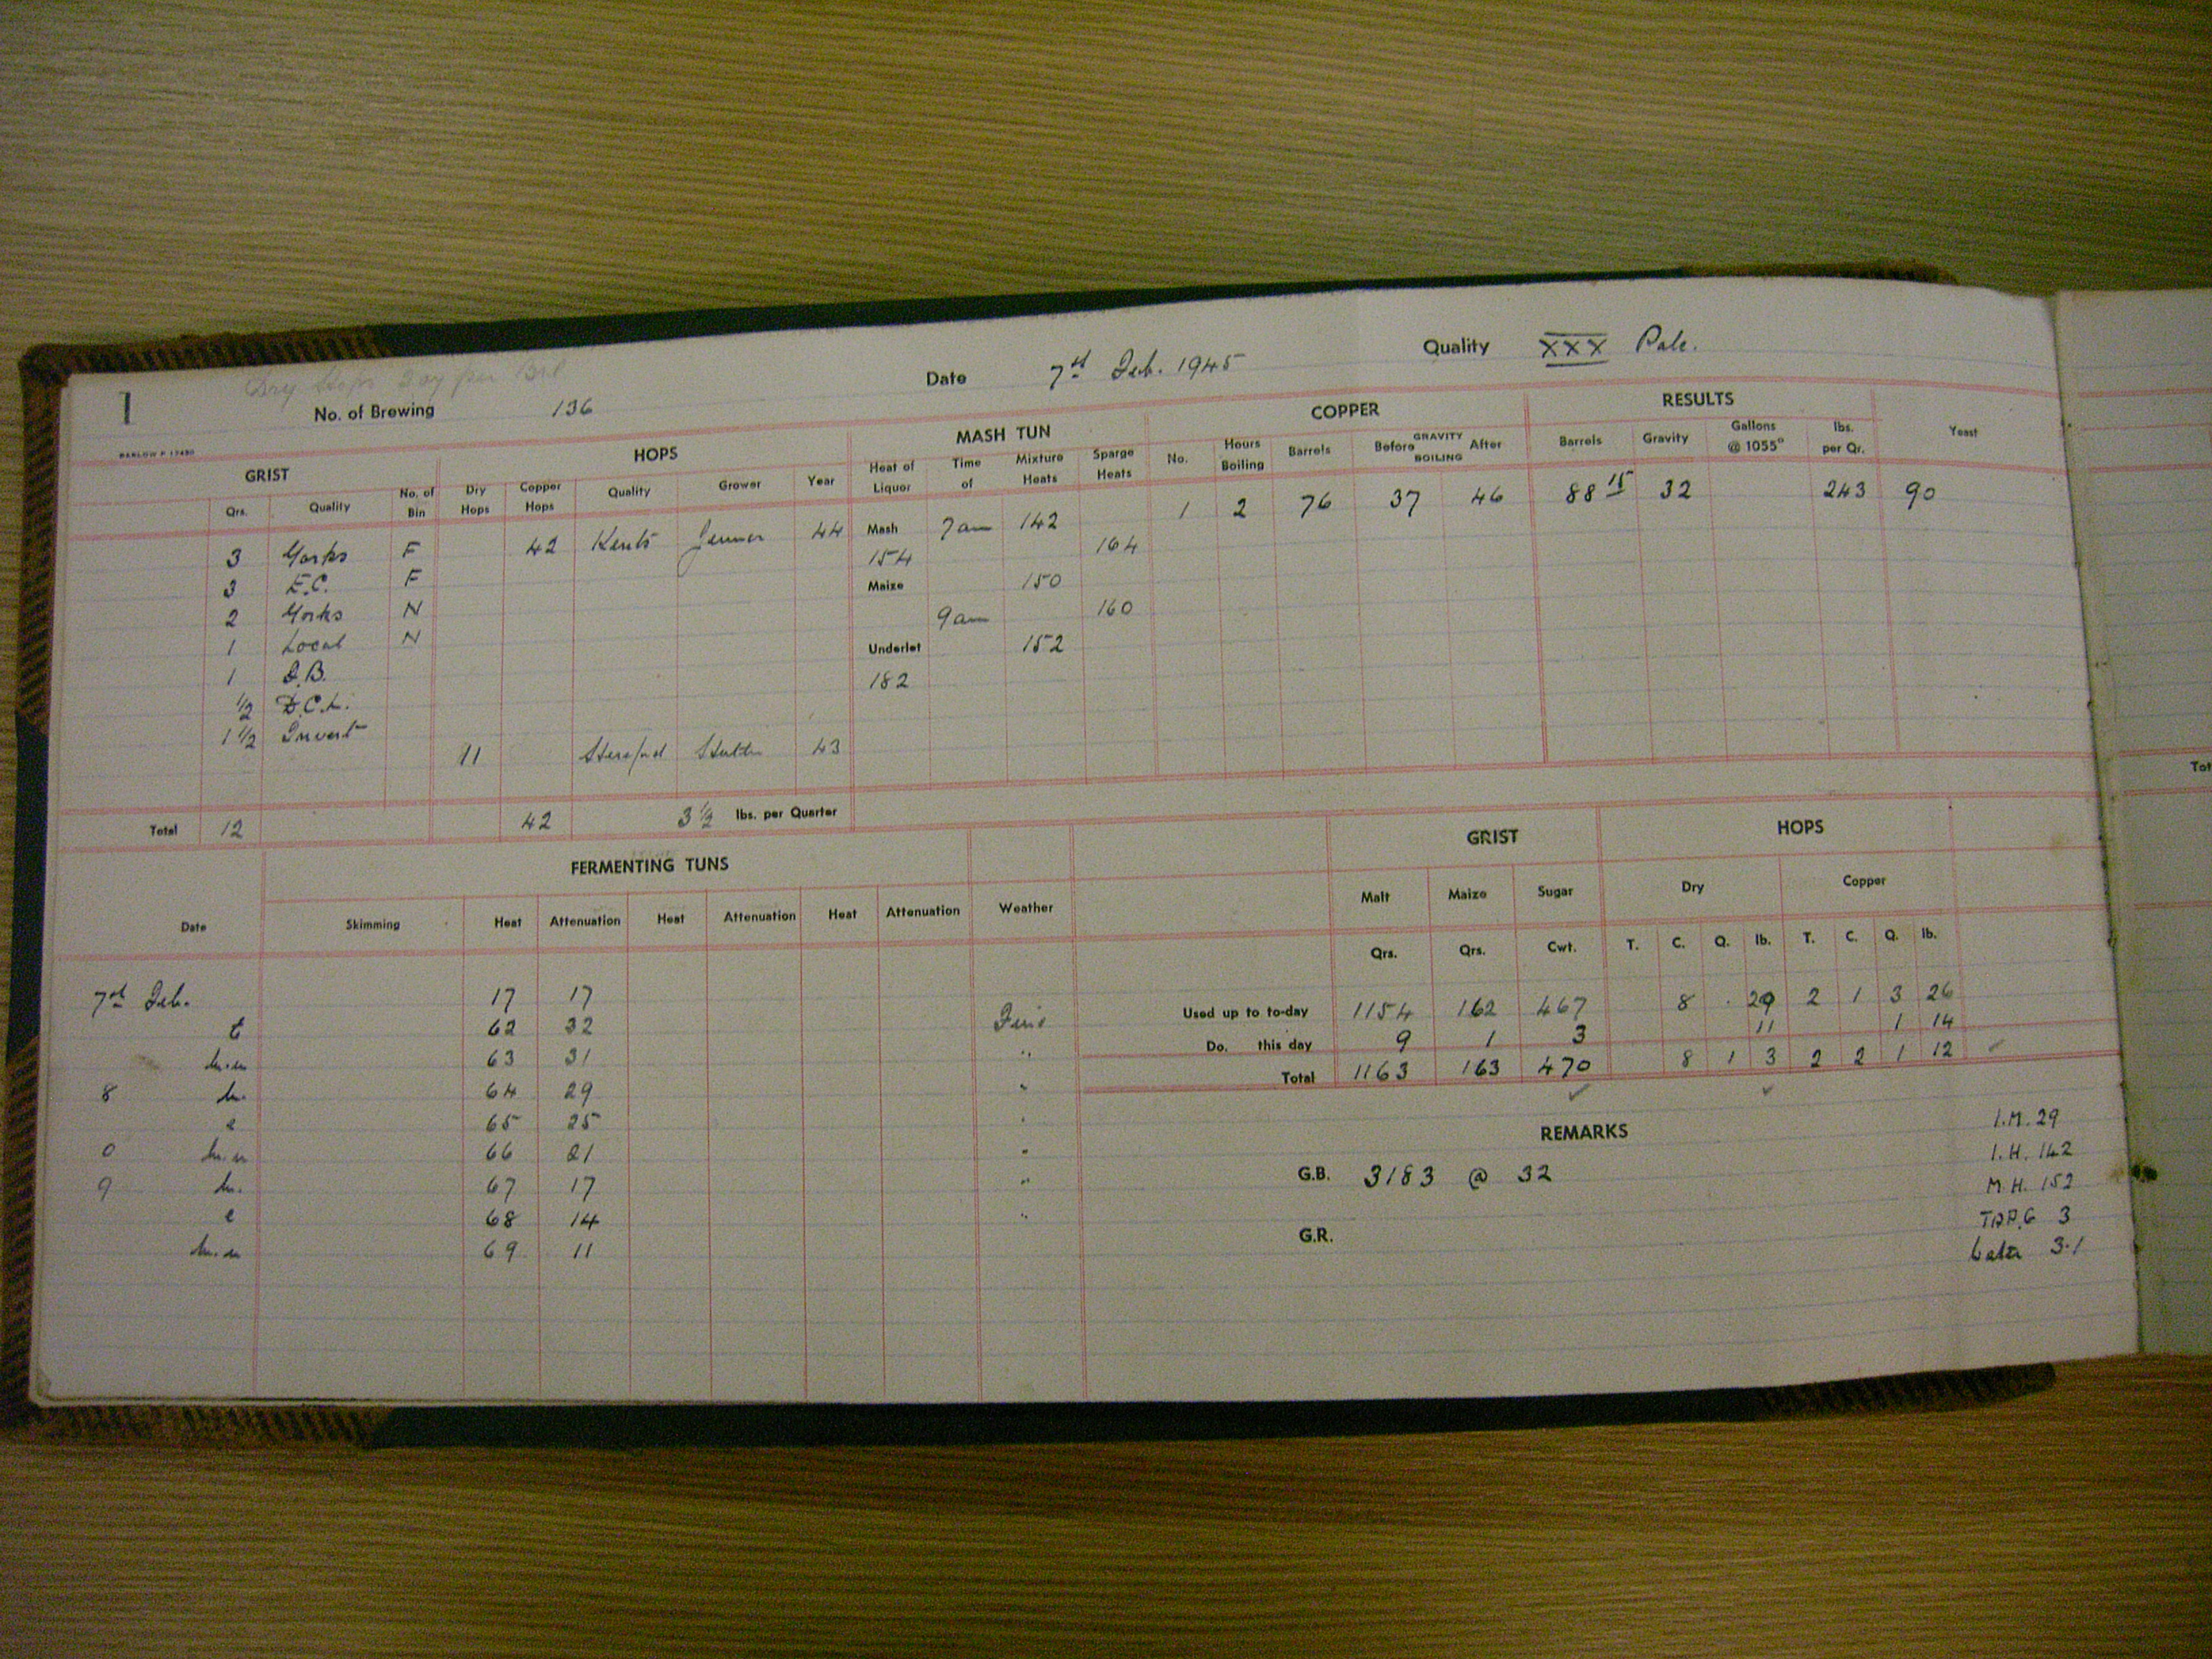 1 Dry Hops 3 oz per Brl
No. of Brewing 136 Date 7th Feb. 1945 Quality XXX Pale.
BARLOW P 17490
GRIST HOPS MASH TUN COPPER RESULTS
Qrs. Quality No. of Bin Dry Hops Copper Hops Quality Grower Year Heat of Liquor Time of Mixture Heats Sparge Heats No. Hours Boiling Barrels Before GRAVITY BOILING After Barrels Gravity Gallons @ 1055° lbs. per Qr. Yeast
3 Yorks F 42 Kents Jenner 44 Mash 7am 142 1 2 76 37 46 88 15 32 243 90
3 E.C. F 154 164
2 Yorks N Maize 150
1 Local N 9am 160
1 Underlet 152
1/2 D.C.L. 182
1 1/2 Invert
11 43
Total 12 42 3 1/2 lbs. per Quarter
FERMENTING TUNS
Date Skimming Heat Attenuation Heat Attenuation Heat Attenuation Weather
7th Feb. 17 17
62 32
m.n 63 31 "
8 m. 64 29 "
e 65 25 "
0 m.n 66 21 "
9 m. 67 17 "
e 68 14 "
m.n 69 11
GRIST HOPS
Malt Maize Sugar Dry Copper
Qrs. Qrs. Cwt. T. C. Q. lb. T. C. Q. lb.
Used up to to-day 1154 162 467 8 . 20 2 1 3 26
Do. this day 9 1 3 11 1 14
Total 1163 163 470 8 1 3 2 2 1 12
REMARKS
G.B. 3183 @ 32
G.R.
I.M. 29
I.H. 142
M.H. 152
TAP.G 3
Later 3.1
Tot